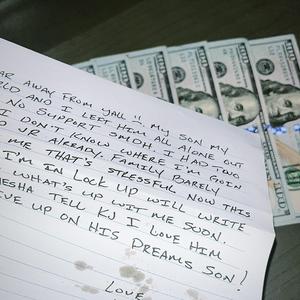 AR AWAY FROM YALL'LL MY SON MY
RLD AND I LEFT HIM ALL ALONE OUT
NO SUPPORT SMDH. I ALONE OUT
I DON'T KNOW WHERE I'M GOIN
JR ALREADY. FAMILY BARELY
ME THAT'S STRESSFUL NOW THIS
I'M IN LOCK UP WILL WRITE
WHAT'S UP WIT ME SOON.
ESHA TELL KJ I LOVE HIM
VE UP ON HIS DREAMS SON!
LOVE